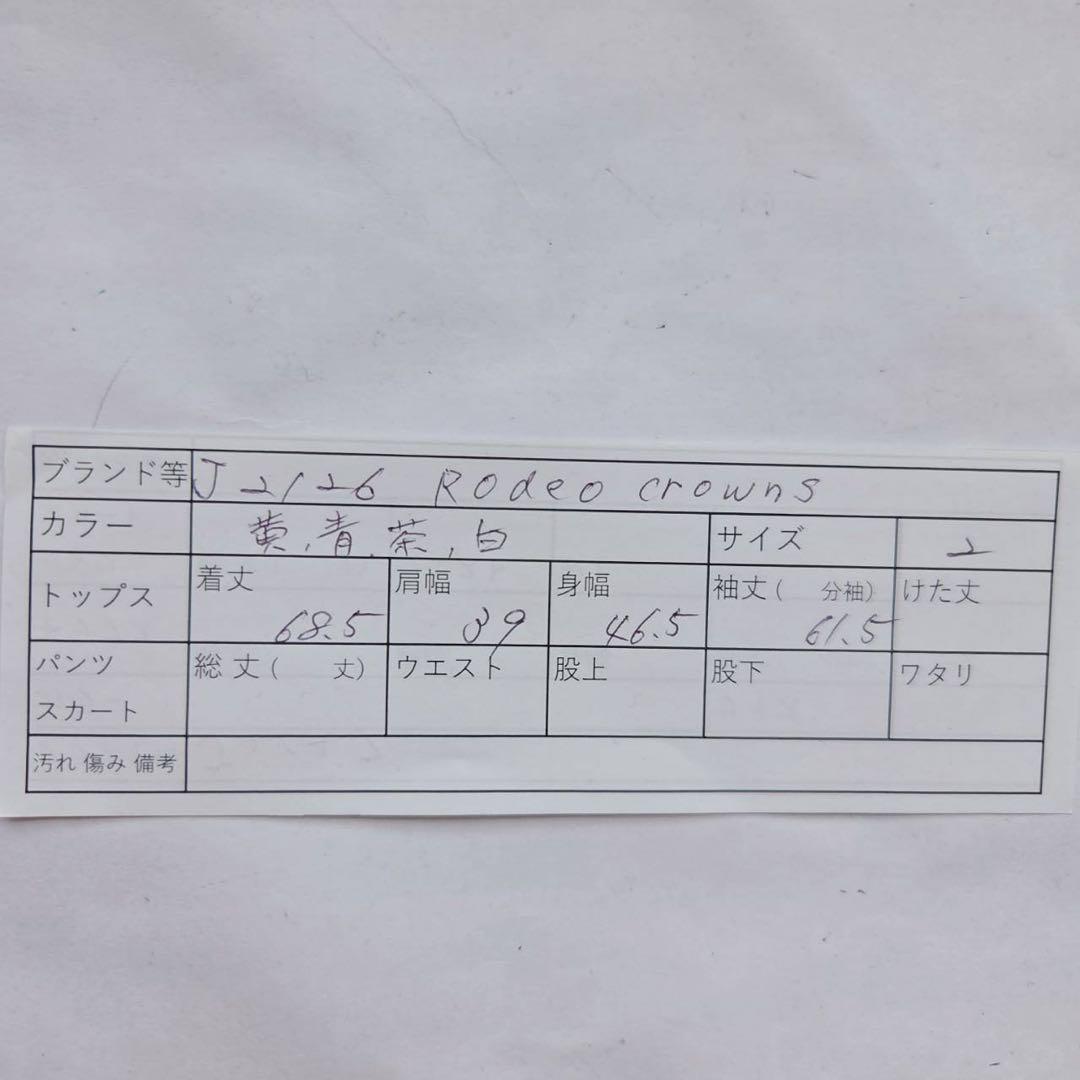 ブランド等 J2126 Rodeo crowns
カラー 黄,青,茶,白 サイズ 2
トップス 着丈 68.5 肩幅 39 身幅 46.5 袖丈( 分袖) 61.5 けた丈
パンツ スカート 総丈( 丈) ウエスト 股上 股下 ワタリ
汚れ 傷み 備考